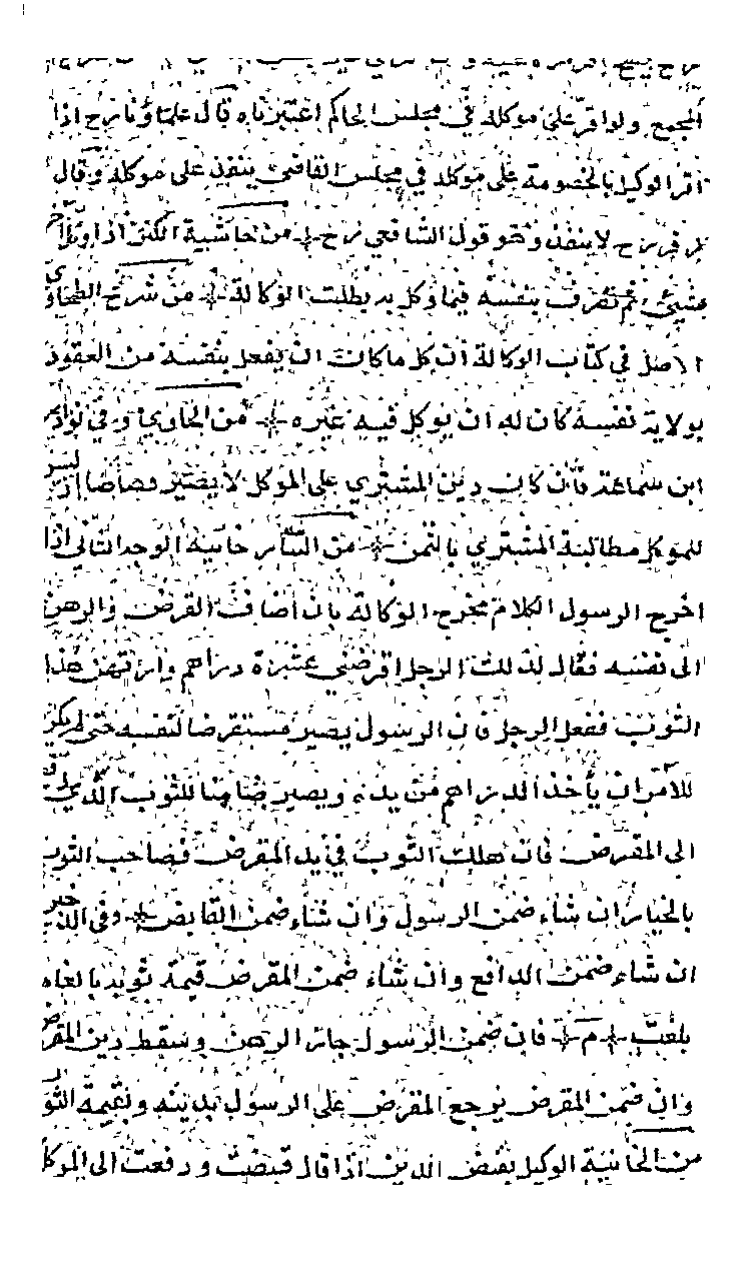 المجمع ولو اقر على موكله في مجلس الحاكم اعتبرناه قال علماؤنا رح اذا
اقر الوكيل بالخصومة على موكله في مجلس القاضي ينفذ على موكله وقال
زفر رح لا ينفذ وهو قول الشافعي رح من حاشية الكنز اذا وكل آخر
بشيء ثم تصرف بنفسه فيما وكل به بطلت الوكالة من شرح الطحاوي
الاصل في كتاب الوكالة ان كل ما كان ان يفعل بنفسه من العقود
بولاية نفسه كان له ان يوكل فيه غيره من الحاوي وفي نوادر
ابن سماعة بأن كان دين المشتري على الموكل لا يصير قصاصا اذ ليس
للموكل مطالبة المشتري بالثمن من التتار خانية الوجه الثاني اذا
اخرج الرسول الكلام مخرج الوكالة بان اضاف القرض والرهن
الى نفسه فقال لذلك الرجل اقرضني عشرة دراهم وارتهن هذا
الثوب ففعل الرجل فان الرسول يصير مستقرضا لنفسه حتى لم يكن
للآمر ان يأخذ الدراهم من يده ويصير ضامنا للثوب الذي دفع
الى المقرض فان هلك الثوب في يد المقرض فصاحب الثوب
بالخيار ان شاء ضمن الرسول وان شاء ضمن القابض وفي الذخيرة
ان شاء ضمن الدافع وان شاء ضمن المقرض قيمة ثوبه بالغا ما
بلغت م فان ضمن الرسول جاز الرهن وسقط دين المقرض
وان ضمن المقرض يرجع المقرض على الرسول بدينه وبقيمة الثوب
من الخانية الوكيل بقبض الدين اذا قال قبضت ودفعت الى الموكل